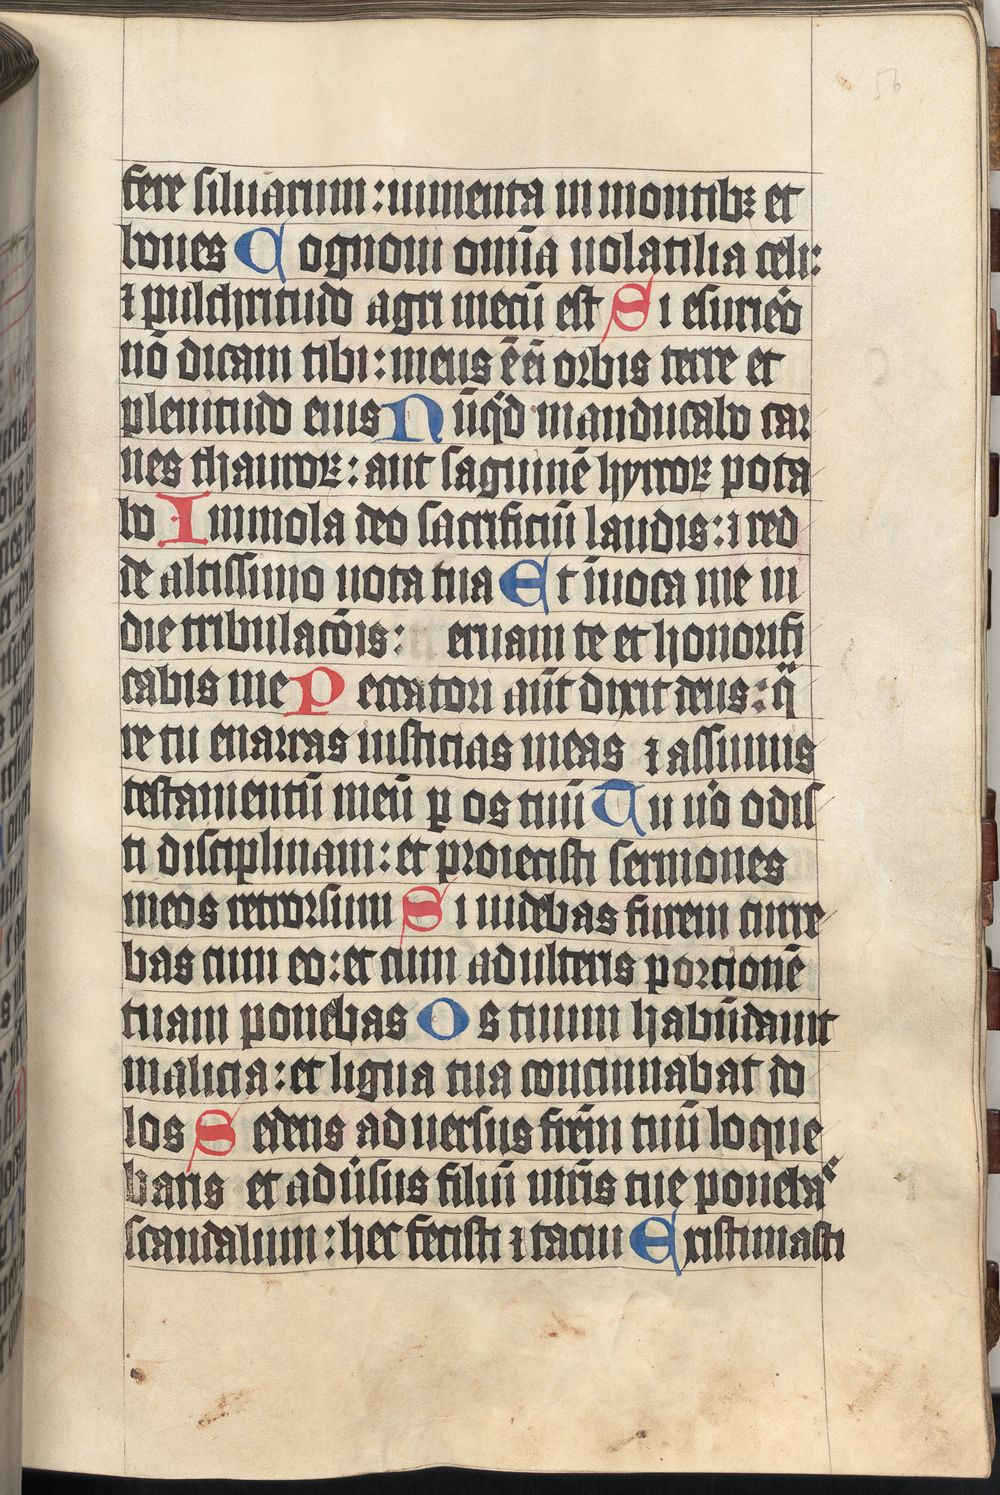 fere siluarum: iumenta in montibꝫ et
boues Cognoui om̄ia uolatilia celi:
⁊ pulchritudo agri mecū est Si esuriḗo
nō dicam tibi: meus ē ēī orbis terre et
plenitudo eius Nūq̇d manducabo car
nes thauroꝝ: aut sāguinē hyrcoꝝ pota
bo Immola deo sacrificiū laudis: ⁊ red
de altissimo uota tua Et īuoca me in
die tribulac̄ois: eruam te et honorifi
cabis me Peccatori aūt dixit deus: q̈
re tu enarras iusticias meas ⁊ assumis
testamentū meū ꝑ os tuū Tu u̇o odis
ti disciplinam: et proiecisti sermones
meos retrorsum Si uidebas furem curre
bas cum eo: et cum adulteris porcionē
tuam ponebas Os tuum habūdauit
malicia: et ligua tua concinnabat do
los Sedens aduersus frēm tuū loque
baris et adūsus filiū mr̄is tue poneba͛
scandalum: hec fecisti ⁊ tacui Existimasti
56